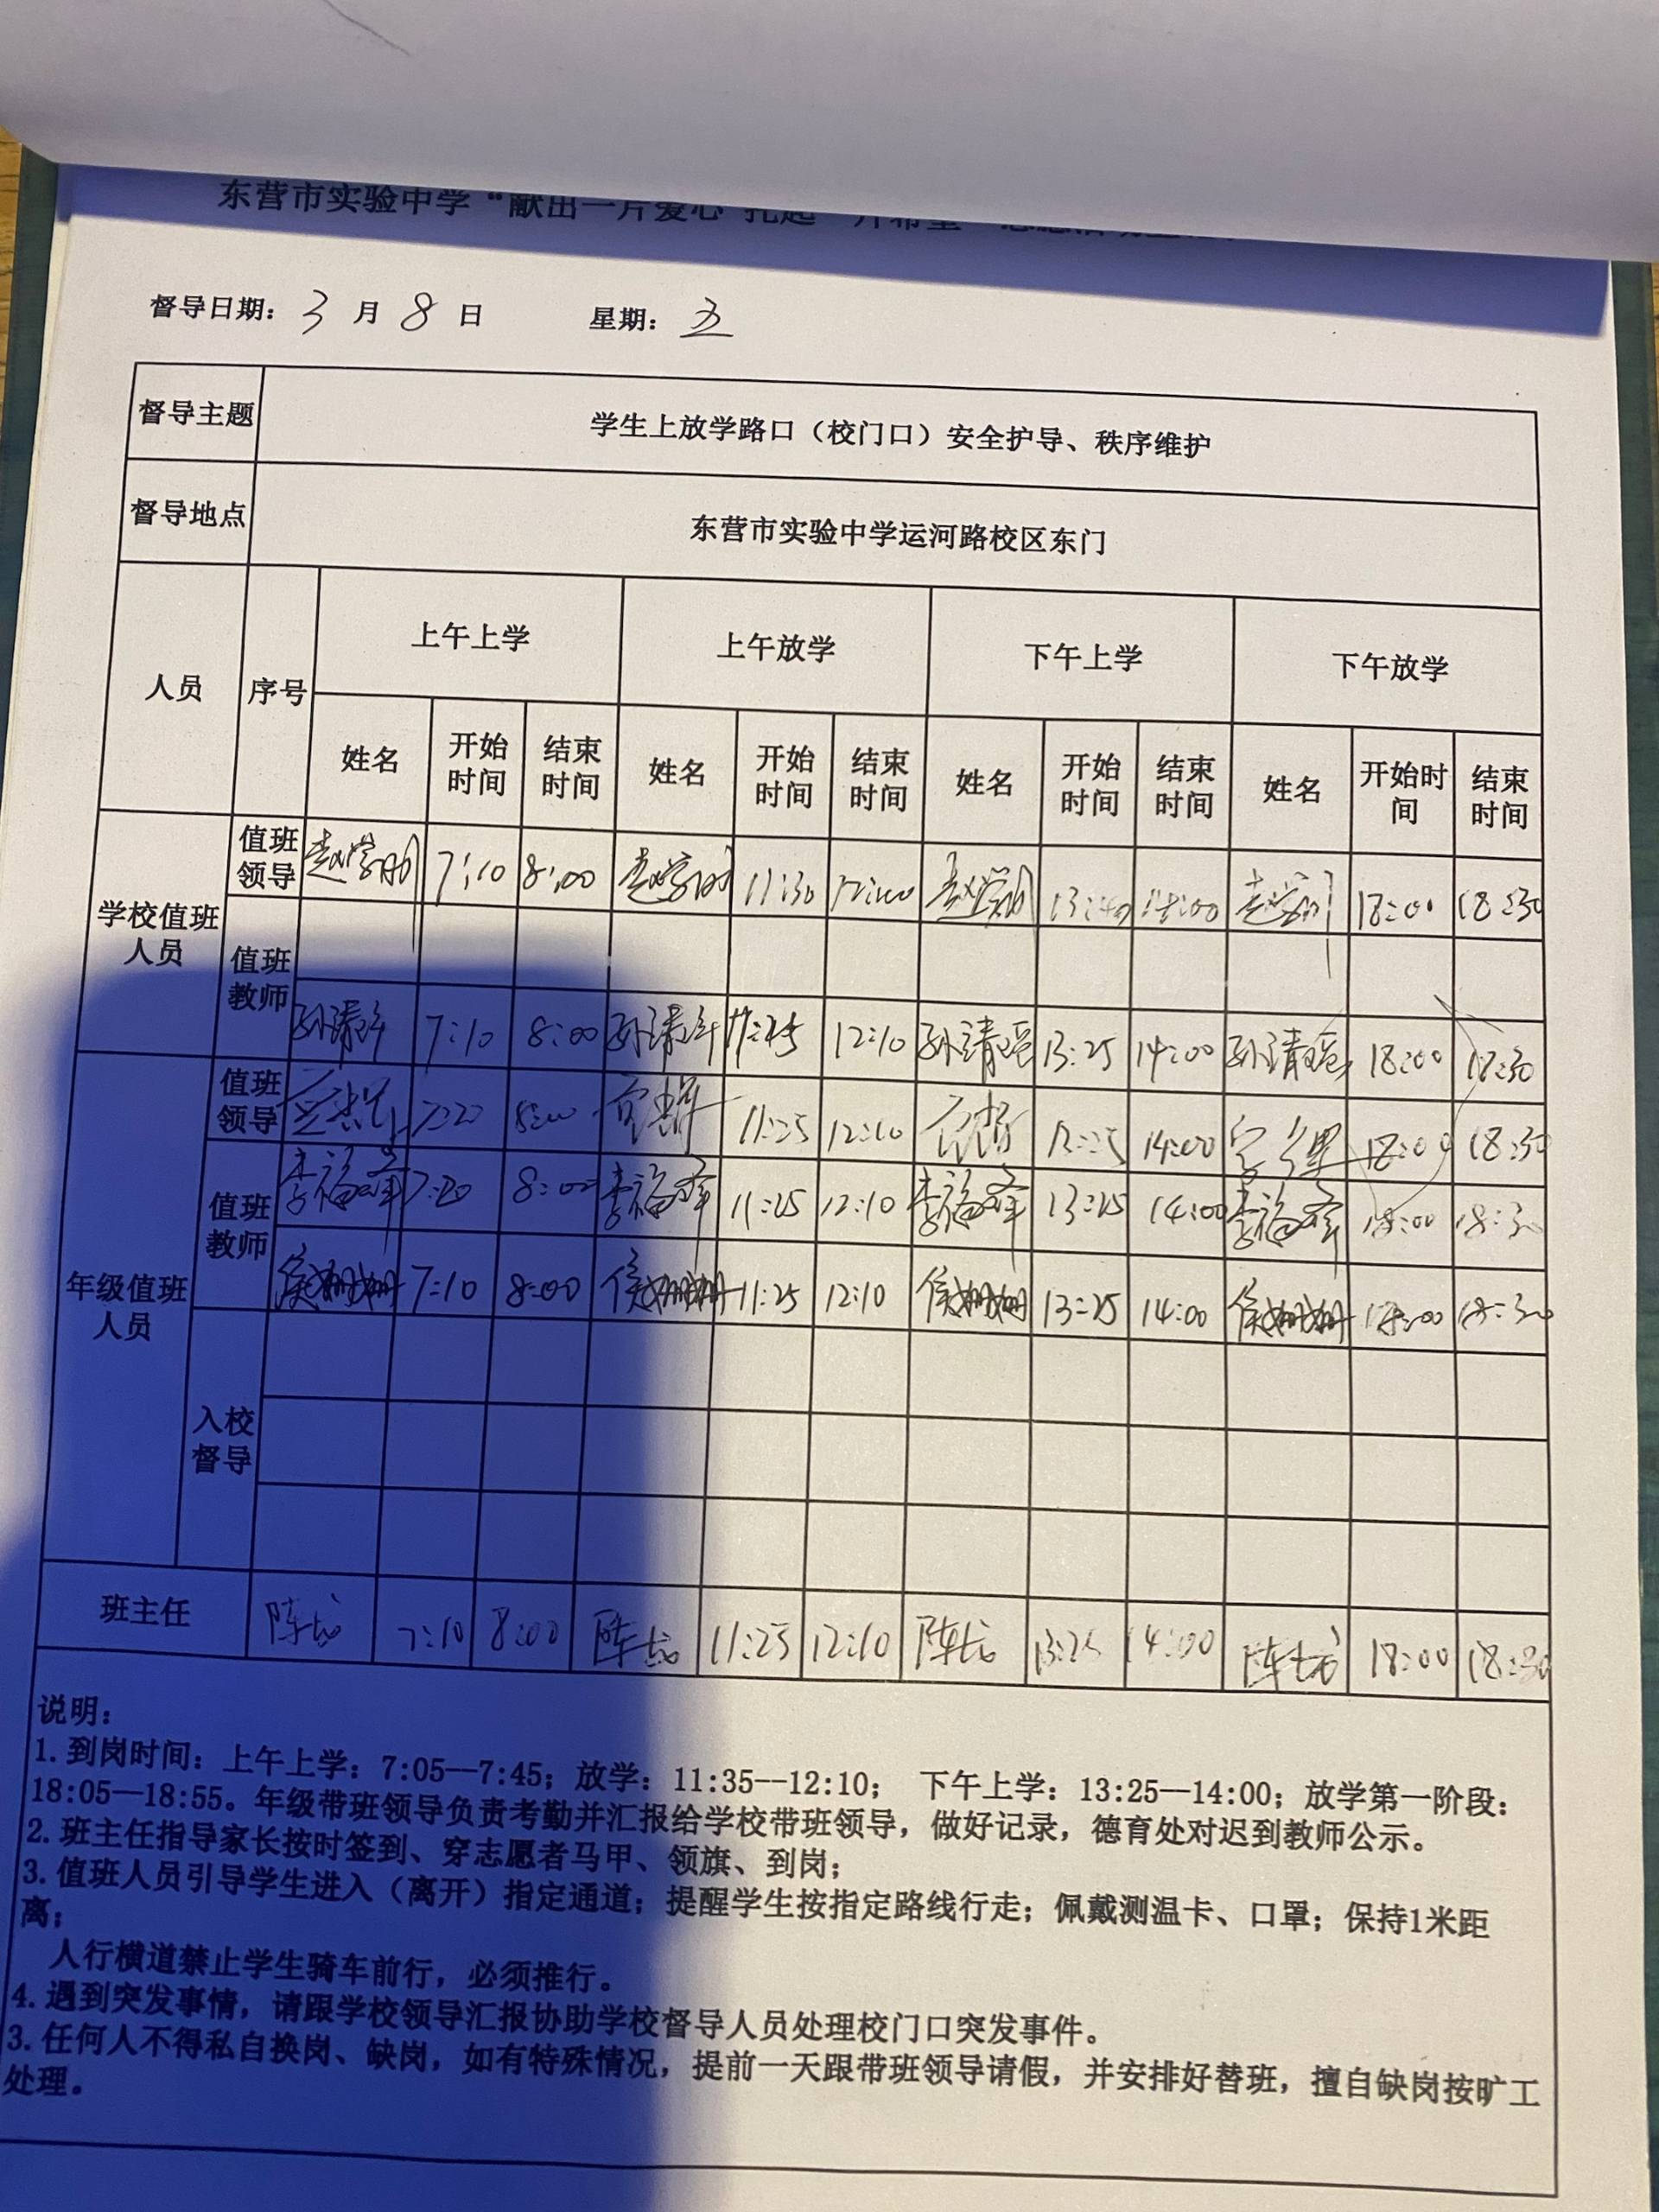 东营市实验中学“献出一片爱心
督导日期：3月8日 星期：五
督导主题 学生上放学路口（校门口）安全护导、秩序维护
督导地点 东营市实验中学运河路校区东门
人员 序号 上午上学 上午放学 下午上学 下午放学
姓名 开始时间 结束时间 姓名 开始时间 结束时间 姓名 开始时间 结束时间 姓名 开始时间 结束时间
学校值班人员
值班领导 7:10 8:00 11:30 12:00 13:40 14:00 18:00 18:30
值班教师
7:10 8:00 11:25 12:10 13:25 14:00 18:00 18:30
年级值班人员
值班领导 8:00 11:25 12:10 14:00 18:00 18:30
值班教师 李福峰 7:20 8:00 李福峰 11:25 12:10 李福峰 13:25 14:00 李福峰 18:00 18:30
侯姗姗 7:10 8:00 侯姗姗 11:25 12:10 侯姗姗 13:25 14:00 侯姗姗 18:00 18:30
入校督导
班主任 7:10 8:00 11:25 12:10 13:25 14:00 18:00 18:30
说明：
1.到岗时间：上午上学：7:05—7:45；放学：11:35--12:10； 下午上学：13:25—14:00；放学第一阶段：
18:05—18:55。年级带班领导负责考勤并汇报给学校带班领导，做好记录，德育处对迟到教师公示。
2.班主任指导家长按时签到、穿志愿者马甲、领旗、到岗；
3.值班人员引导学生进入（离开）指定通道；提醒学生按指定路线行走；佩戴测温卡、口罩；保持1米距
离；
人行横道禁止学生骑车前行，必须推行。
4.遇到突发事情，请跟学校领导汇报协助学校督导人员处理校门口突发事件。
3.任何人不得私自换岗、缺岗，如有特殊情况，提前一天跟带班领导请假，并安排好替班，擅自缺岗按旷工
处理。